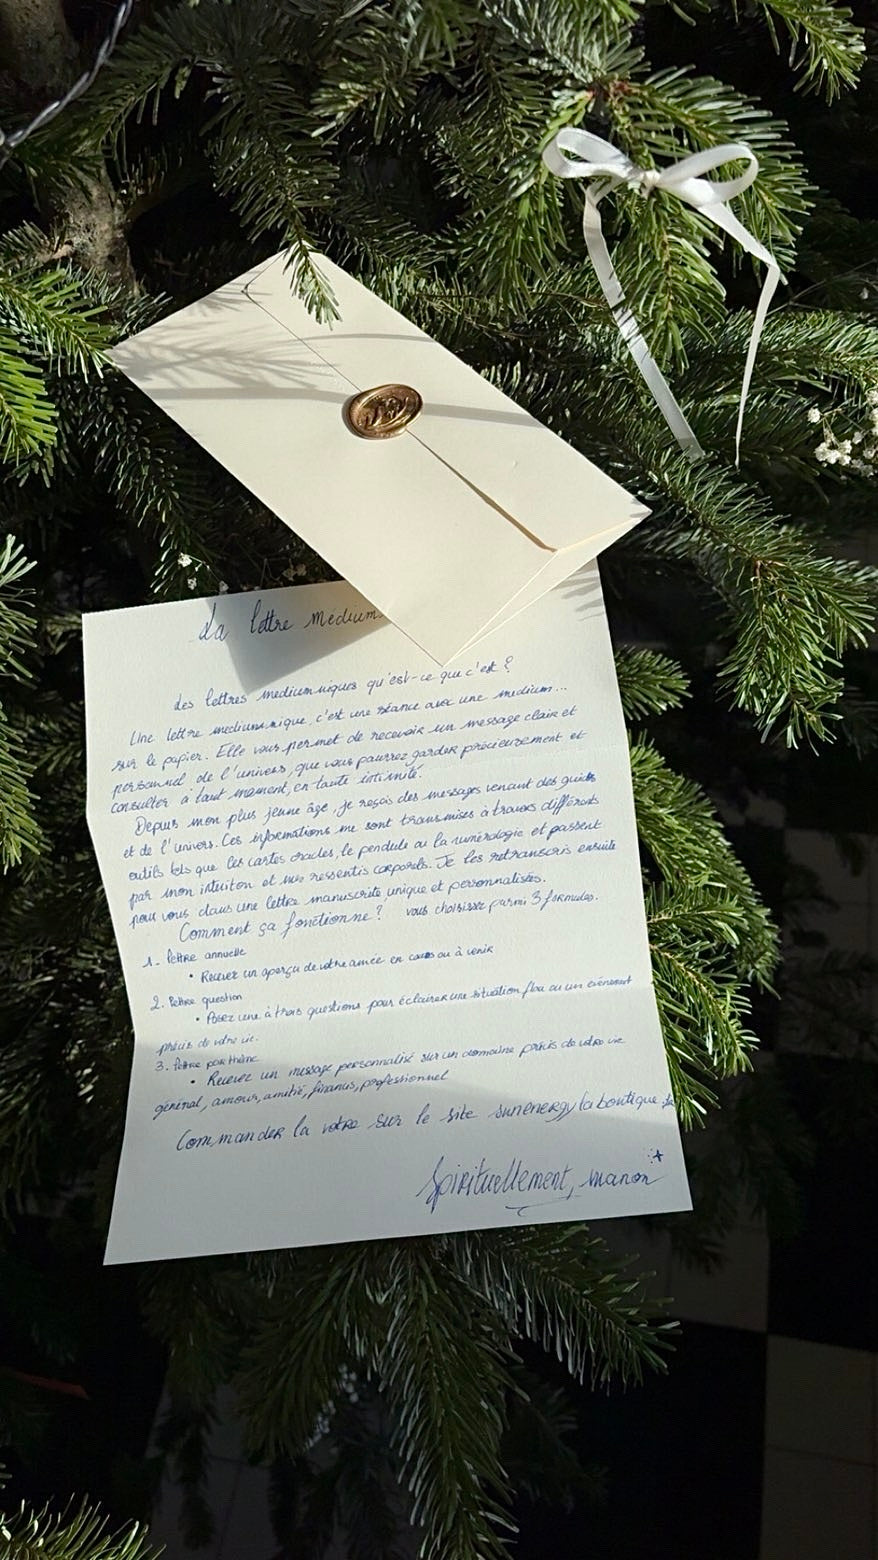 La lettre médium
Les lettres mediumniques qu'est-ce que c'est ?
Une lettre mediumnique, c'est une séance avec une medium...
sur le papier. Elle vous permet de recevoir un message clair et
personnel de l'univers, que vous pourrez garder précieusement et
consulter à tout moment, en toute intimité.
Depuis mon plus jeune âge, je reçois des messages venant des guides
et de l'univers. Ces informations me sont transmises à travers différents
outils tels que les cartes oracles, le pendule ou la numérologie et passent
par mon intuition et mes ressentis corporels. Je les retranscris ensuite
pour vous dans une lettre manuscrite unique et personnalisée.
Comment ça fonctionne ? vous choisissez parmi 3 formules.
1. lettre annuelle
• Recevez un aperçu de votre année en cours ou à venir
2. lettre question
• Posez une à trois questions pour éclairer une situation flou ou un événement
précis de votre vie.
3. lettre par thème
• Recevez un message personnalisé sur un domaine précis de votre vie
général, amour, amitié, finances, professionnel
Commander la votre sur le site sunenergylaboutique.
Spirituellement, Manon